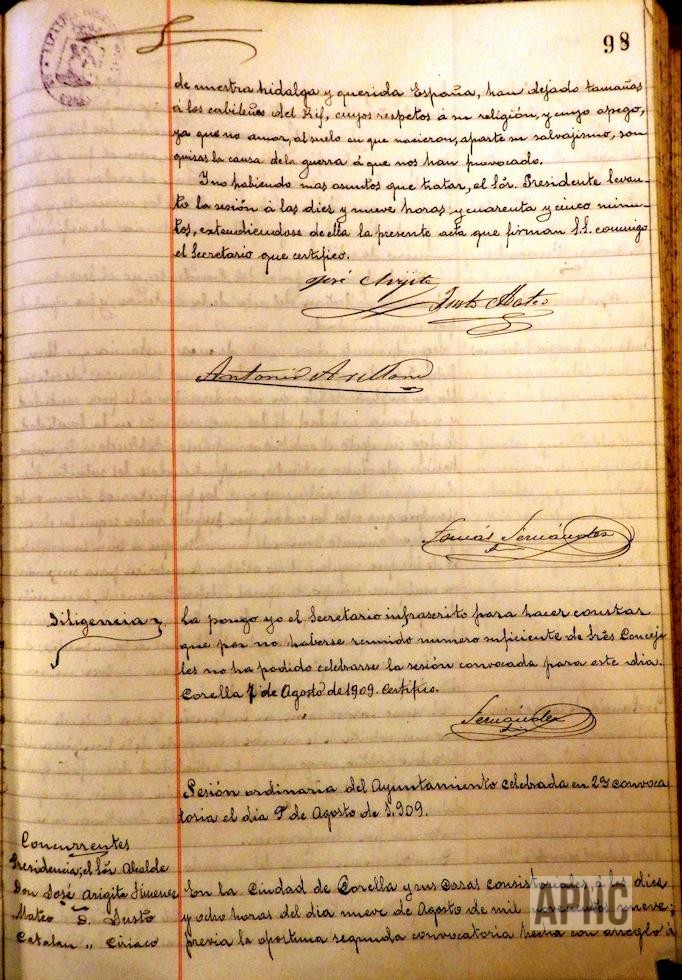 98
de nuestra hidalga y querida España, han dejado tamañas
á los cabileños del Rif, cuyos respetos á su religión, y cuyo apego,
ya que no amor, al suelo en que nacieron, aparte su salvajismo, son
quisas la causa de la guerra á que nos han provocado.
Y no habiendo mas asuntos que tratar, el Sór. Presidente levan-
to la sesión á las dies y nueve horas y cuarenta y cinco minu-
tos, extendiendose de ella la presente acta que firman S.S. conmigo
el Secretario que certifico.
José Arigita
Justo Mateo
Antonio Arellano
Tomás Fernández
Diligencia
La pongo yo el Secretario infrascrito para hacer constar
que por no haberse reunido numero suficiente de Sres Conceja
les no ha podido celebrarse la sesión convocada para este dia.
Corella 7 de Agosto de 1909. Certifico.
Fernández
Sesión ordinaria del Ayuntamiento celebrada en 2ª convoca
toria el dia 9 de Agosto de 1.909.
Concurrentes
Presidencia; el Sór Alcalde
Don José Arigita Jimenez
Mateo D. Justo
Catalan " Ciriaco
En la Ciudad de Corella y sus Casas Consistoriales á las dies
y ocho horas del dia nueve de Agosto de mil novecientos nueve;
previa la oportuna segunda convocatoria hecha con arreglo á